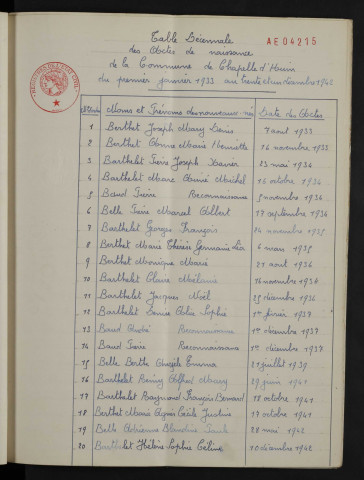 Table Décennale
AE04215
des Actes de naissance
de la Commune de Chapelle d'Huin
du premier janvier 1933 au trente et un décembre 1942
Noms et Prénoms des nouveaux-nés Date des Actes
1 Berthet Joseph Marie Denis 7 aout 1933
2 Berthet Anne Marie 16 novembre 1933
3 Barthelet Pierre Joseph Xavier 23 mai 1934
4 Barthelet Marc Aimé Michel 16 octobre 1934
5 Baud Pierre Reconnaissance 5 novembre 1934
6 Belle Marcel Albert 17 septembre 1934
7 Barthelet Georges François 14 novembre 1935
8 Berthet Marie Thérèse Germaine 6 mars 1935
9 Berthet Monique Marie 21 aout 1936
10 Barthelet Claire Mélanie 16 novembre 1936
11 Barthelet Jacques Noël 25 décembre 1936
12 Barthelet Denise Sophie 1er février 1937
13 Baud André Reconnaissance 1er décembre 1937
14 Baud Pierre Reconnaissance 1er décembre 1937
15 Belle Berthe Angèle Emma 21 juillet 1939
16 Barthelet Alfred 29 juin 1941
17 Barthelet Raymond François Bernard 18 octobre 1941
18 Berthet Marie Agnès Cécile Justine 17 octobre 1941
19 Belle Adrienne Blandine 28 mai 1942
20 Barthelet Hélène Sophie Céline 10 décembre 1942